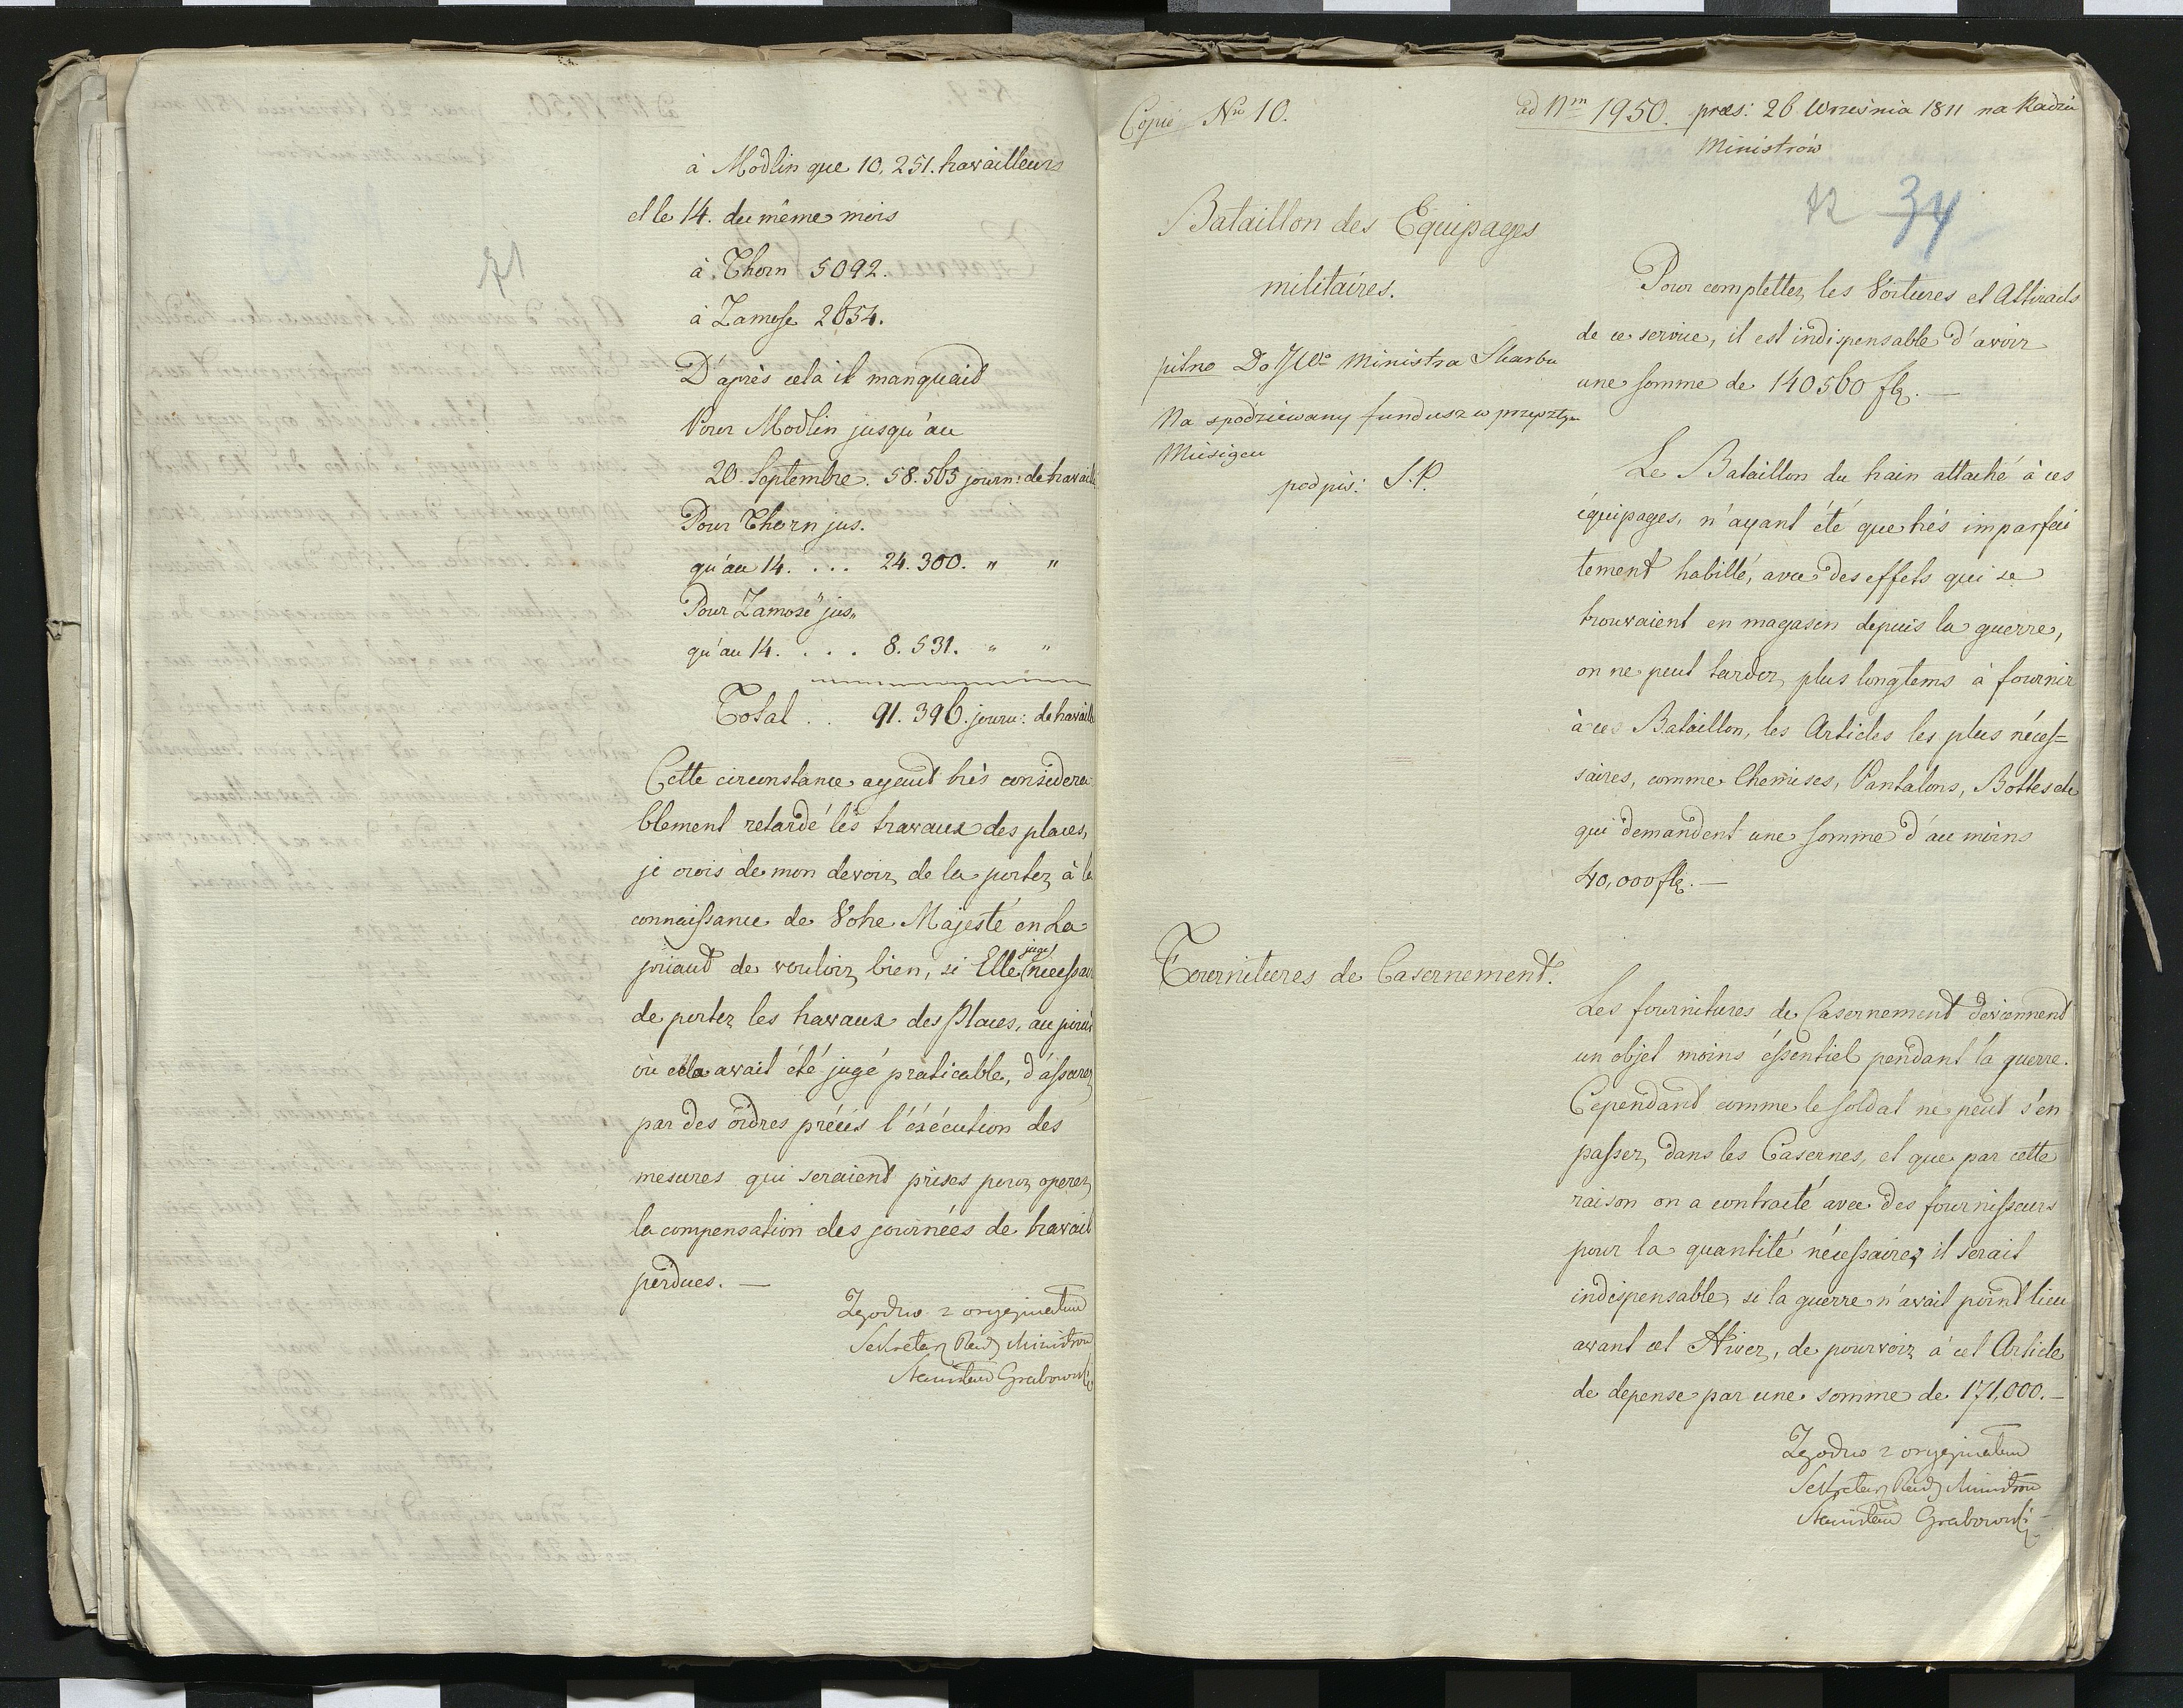 71
à Modlin que 10,251. travailleurs
et le 14. du même mois
à Thorn 5092.
à Zamosc 2654.
D'après cela il manquait
Pour Modlin jusqu'au
20. Septembre. 58.565 journ: de travail
Pour Thorn jus.
qu'au 14. . . . 24.300. " "
Pour Zamosc jus„
qu'au 14. . . . 8.531. " "
Total . . 91.396. journ: de travail
Cette circonstance ayant très considera
blement retardé les travaux des places,
je crois de mon devoir de la porter à la
connaissance de Votre Majesté en La
priant de vouloir bien, si Elle juge necessaire
de porter les travaux des Places, au point
où cela avait été jugé praticable, d'assurer
par des ordres précis l'éxécution des
mesures qui seraient prises pour operer
la compensation des journées de travail
perdues. —
Zgodno z oryginałem
Sekretarz Rady Ministrów
Stanisław Grabowski
Copie No 10.
ad Nm 1950. præs: 26 Września 1811 na Radzie
Ministrów
72 34
Bataillon des Equipages
militaires.
pilno Do JWo Ministra Skarbu
Na spodziewany fundusz w przyszłym
Miesiącu
podpis: S.P.
Pour completter les Voitures et Attirails
de ce service, il est indispensable d'avoir
une somme de 140560 flp. —
Le Bataillon du train attaché à ces
équipages, n'ayant été que très imparfai
tement habillé, avec des effets qui se
trouvaient en magasin depuis la guerre,
on ne peut tarder plus longtems à fournir
à ces Bataillon, les Articles les plus néces=
saires, comme Chemises, Pantalons, Bottes etc
qui demandent une somme d'au moins
40,000 flp. —
Fournitures de Casernement.
Les fournitures de Casernement deviennent
un objet moins éssentiel pendant la guerre.
Cependant comme le soldat ne peut s'en
passer dans les Casernes, et que par cette
raison on a contracté avec des fournisseurs
pour la quantité nécessaire, il serait
indispensable, si la guerre n'avait point lieu
avant cet Hiver, de pourvoir à cet Article
de depense par une somme de 171,000. —
Zgodno z oryginałem
Sekretarz Rady Ministrów
Stanisław Grabowski